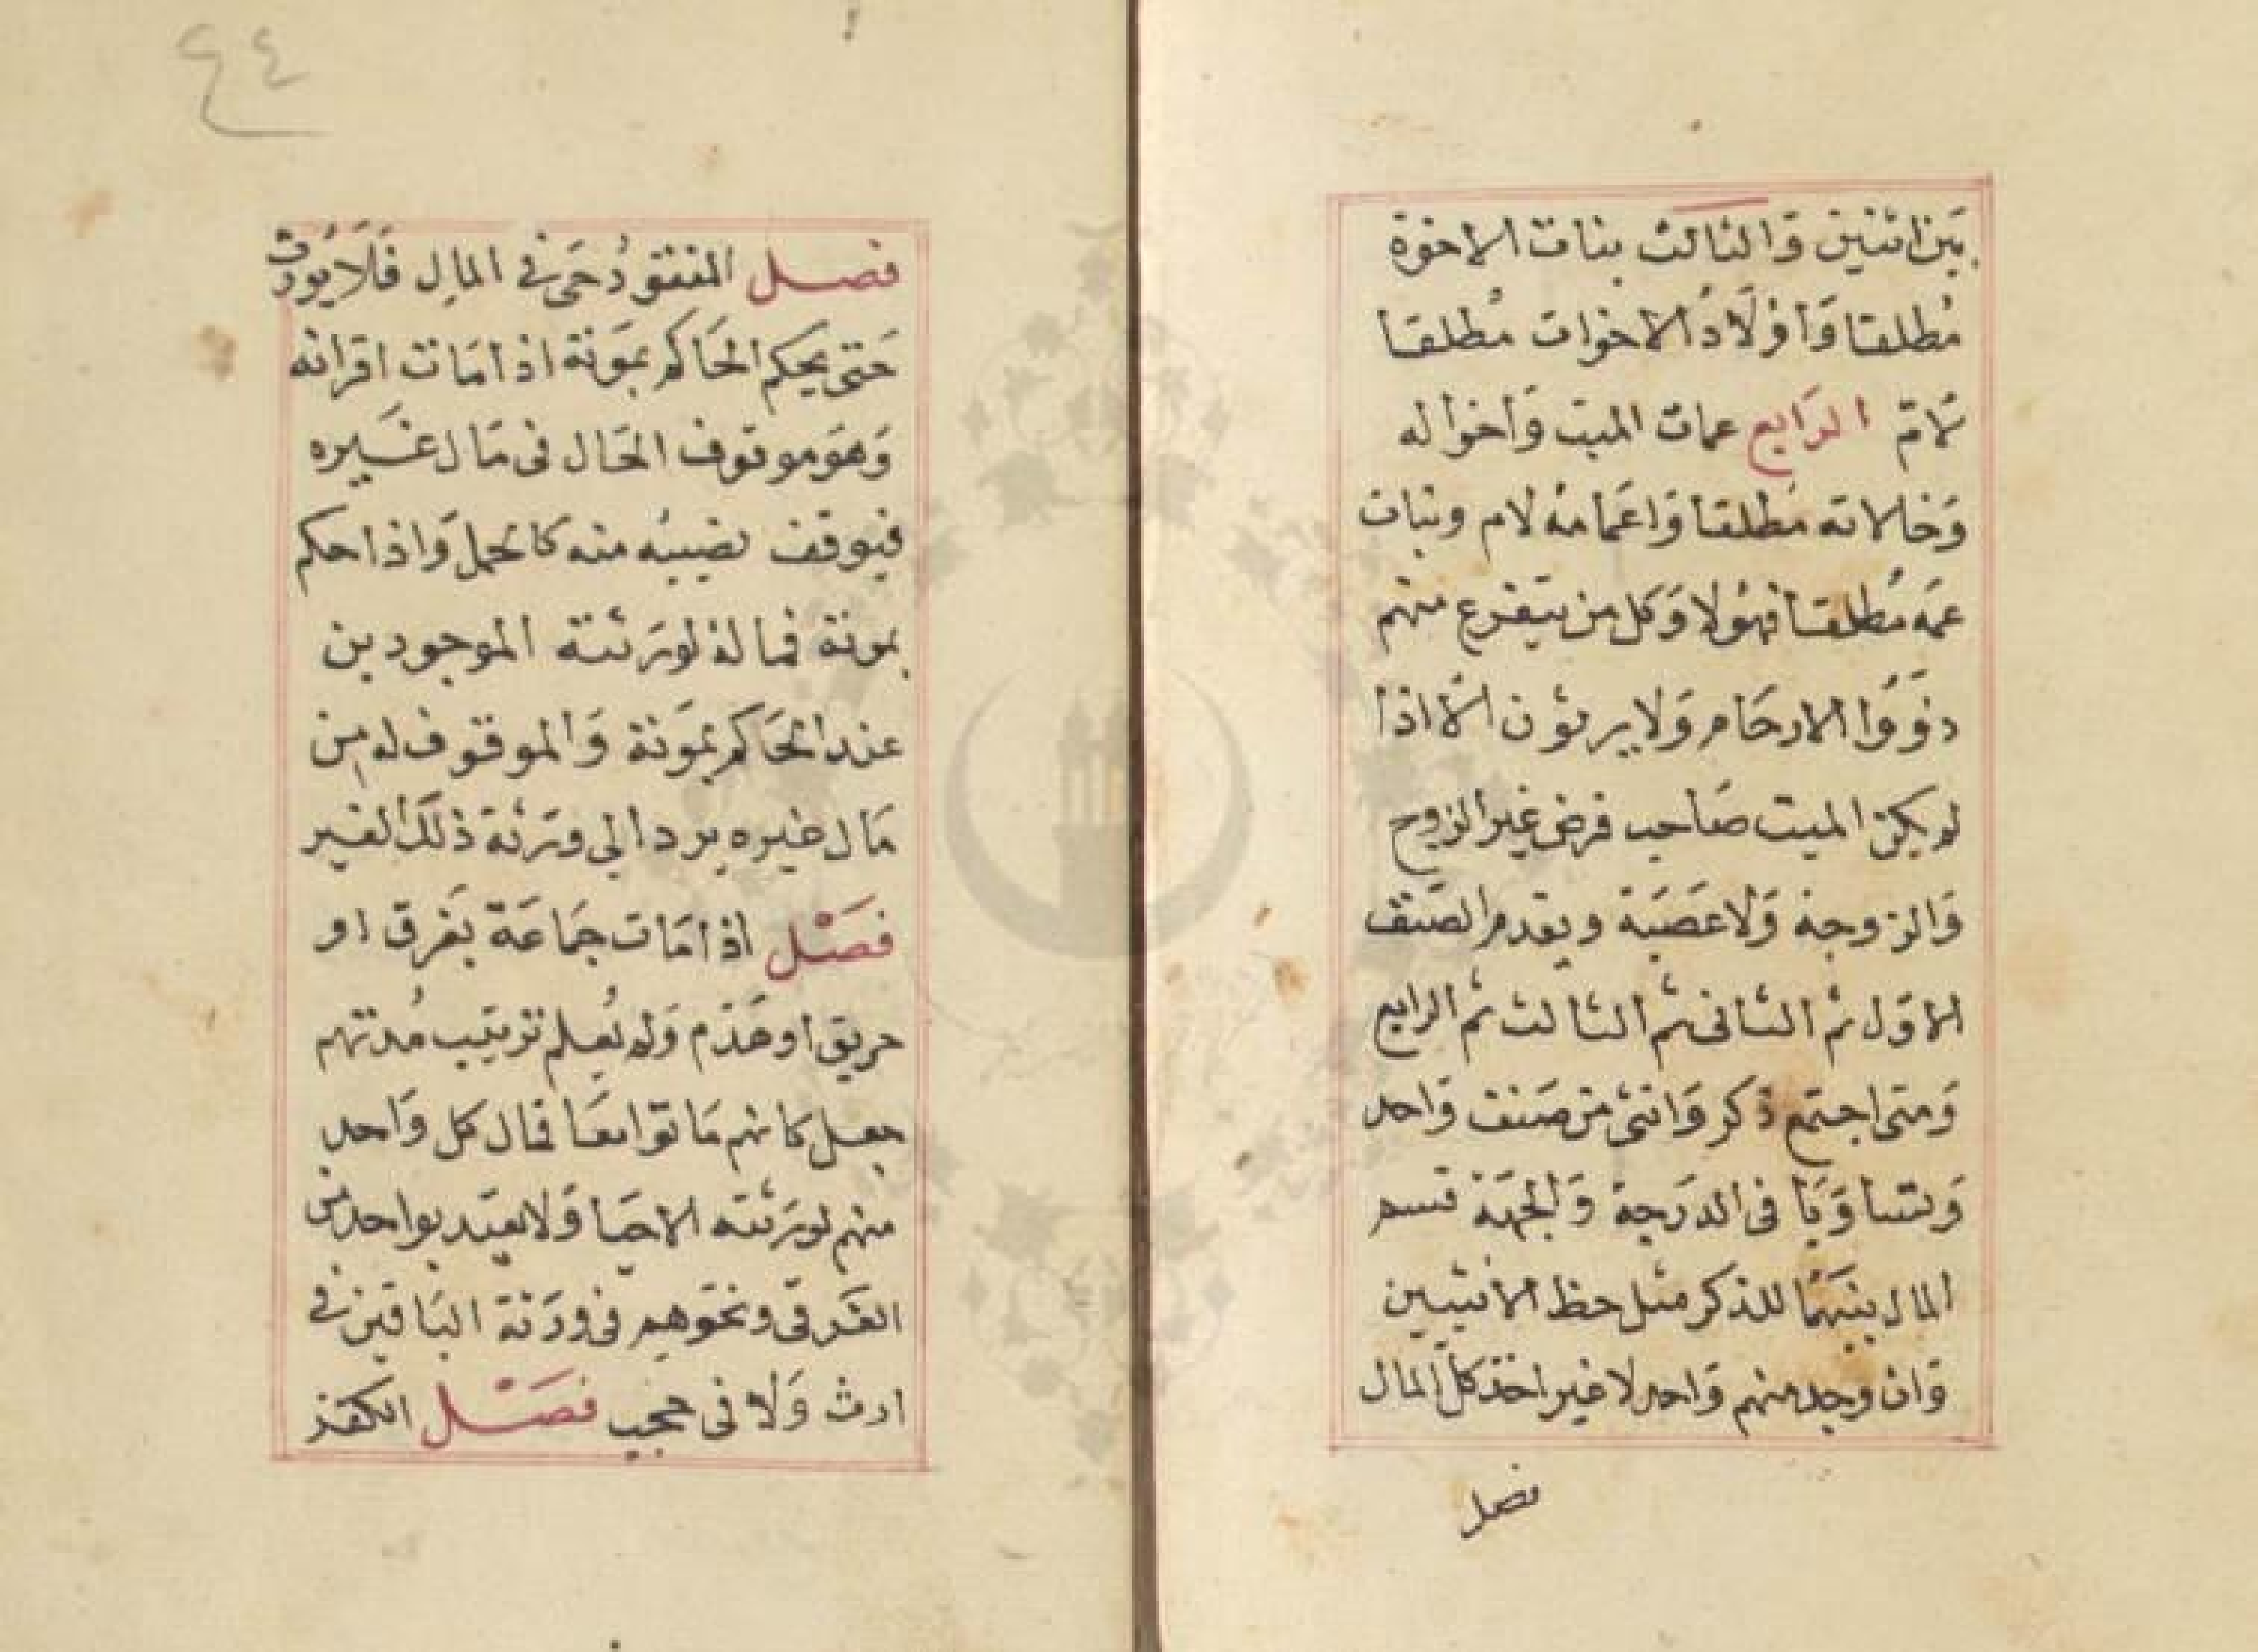 بين اثنين والثالث بنات الاخوة
مُطلقا وَاوْلَادُ الاخوات مُطلقا
لام الرَابع عمات الميت وَاخواله
وَخالاته مُطلقا وَاعمامه لام وبنات
عمه مُطلقا فهولا وَكل من يتفرع منهم
ذوَوُا الارحَام وَلا يرثون الا اذا
لم يكن الميت صَاحب فرض غير الزوج
وَالزوجة وَلا عَصَبَة ويقدم الصنف
الاوّل ثم الثانى ثم الثالث ثم الرابع
وَمتى اجتمع ذكر وَانثى من صنف وَاحد
وَتساوَيَا فى الدرَجة وَالجهَة قسم
المال بينهمَا للذكر مثل حظ الانثيين
وَان وجد منهم وَاحد لا غير اخذ كل المال
فصل
٤٤
فصل المفقودُ حَى فى المال فَلَا يُورث
حَتى يحكم الحَاكم بموَته اذا مَات اقرانه
وَهوَ موقوف الحَال فى مَال غَيره
فيوقف نصيبُه منه كالحمل وَاذا حكم
بموته فماله لورَثته الموجودين
عند الحَاكم بموَته وَالموقوف له مِن
مَال غيره يرد الي ورَثة ذلَك الغير
فصَل اذا مَات جمَاعَة بغَرق او
حريق او هَدَم وَلم يُعلم ترتيب مُدتهم
جعل كانهم مَاتوا معَا فمال كل وَاحد
منهم لورَثته الاحيَا وَلا يعتد بواحد من
الغَرقى ونحَوهم فى ورَثة البَاقين فى
ارث وَلا فى حجب فصَل الكفر